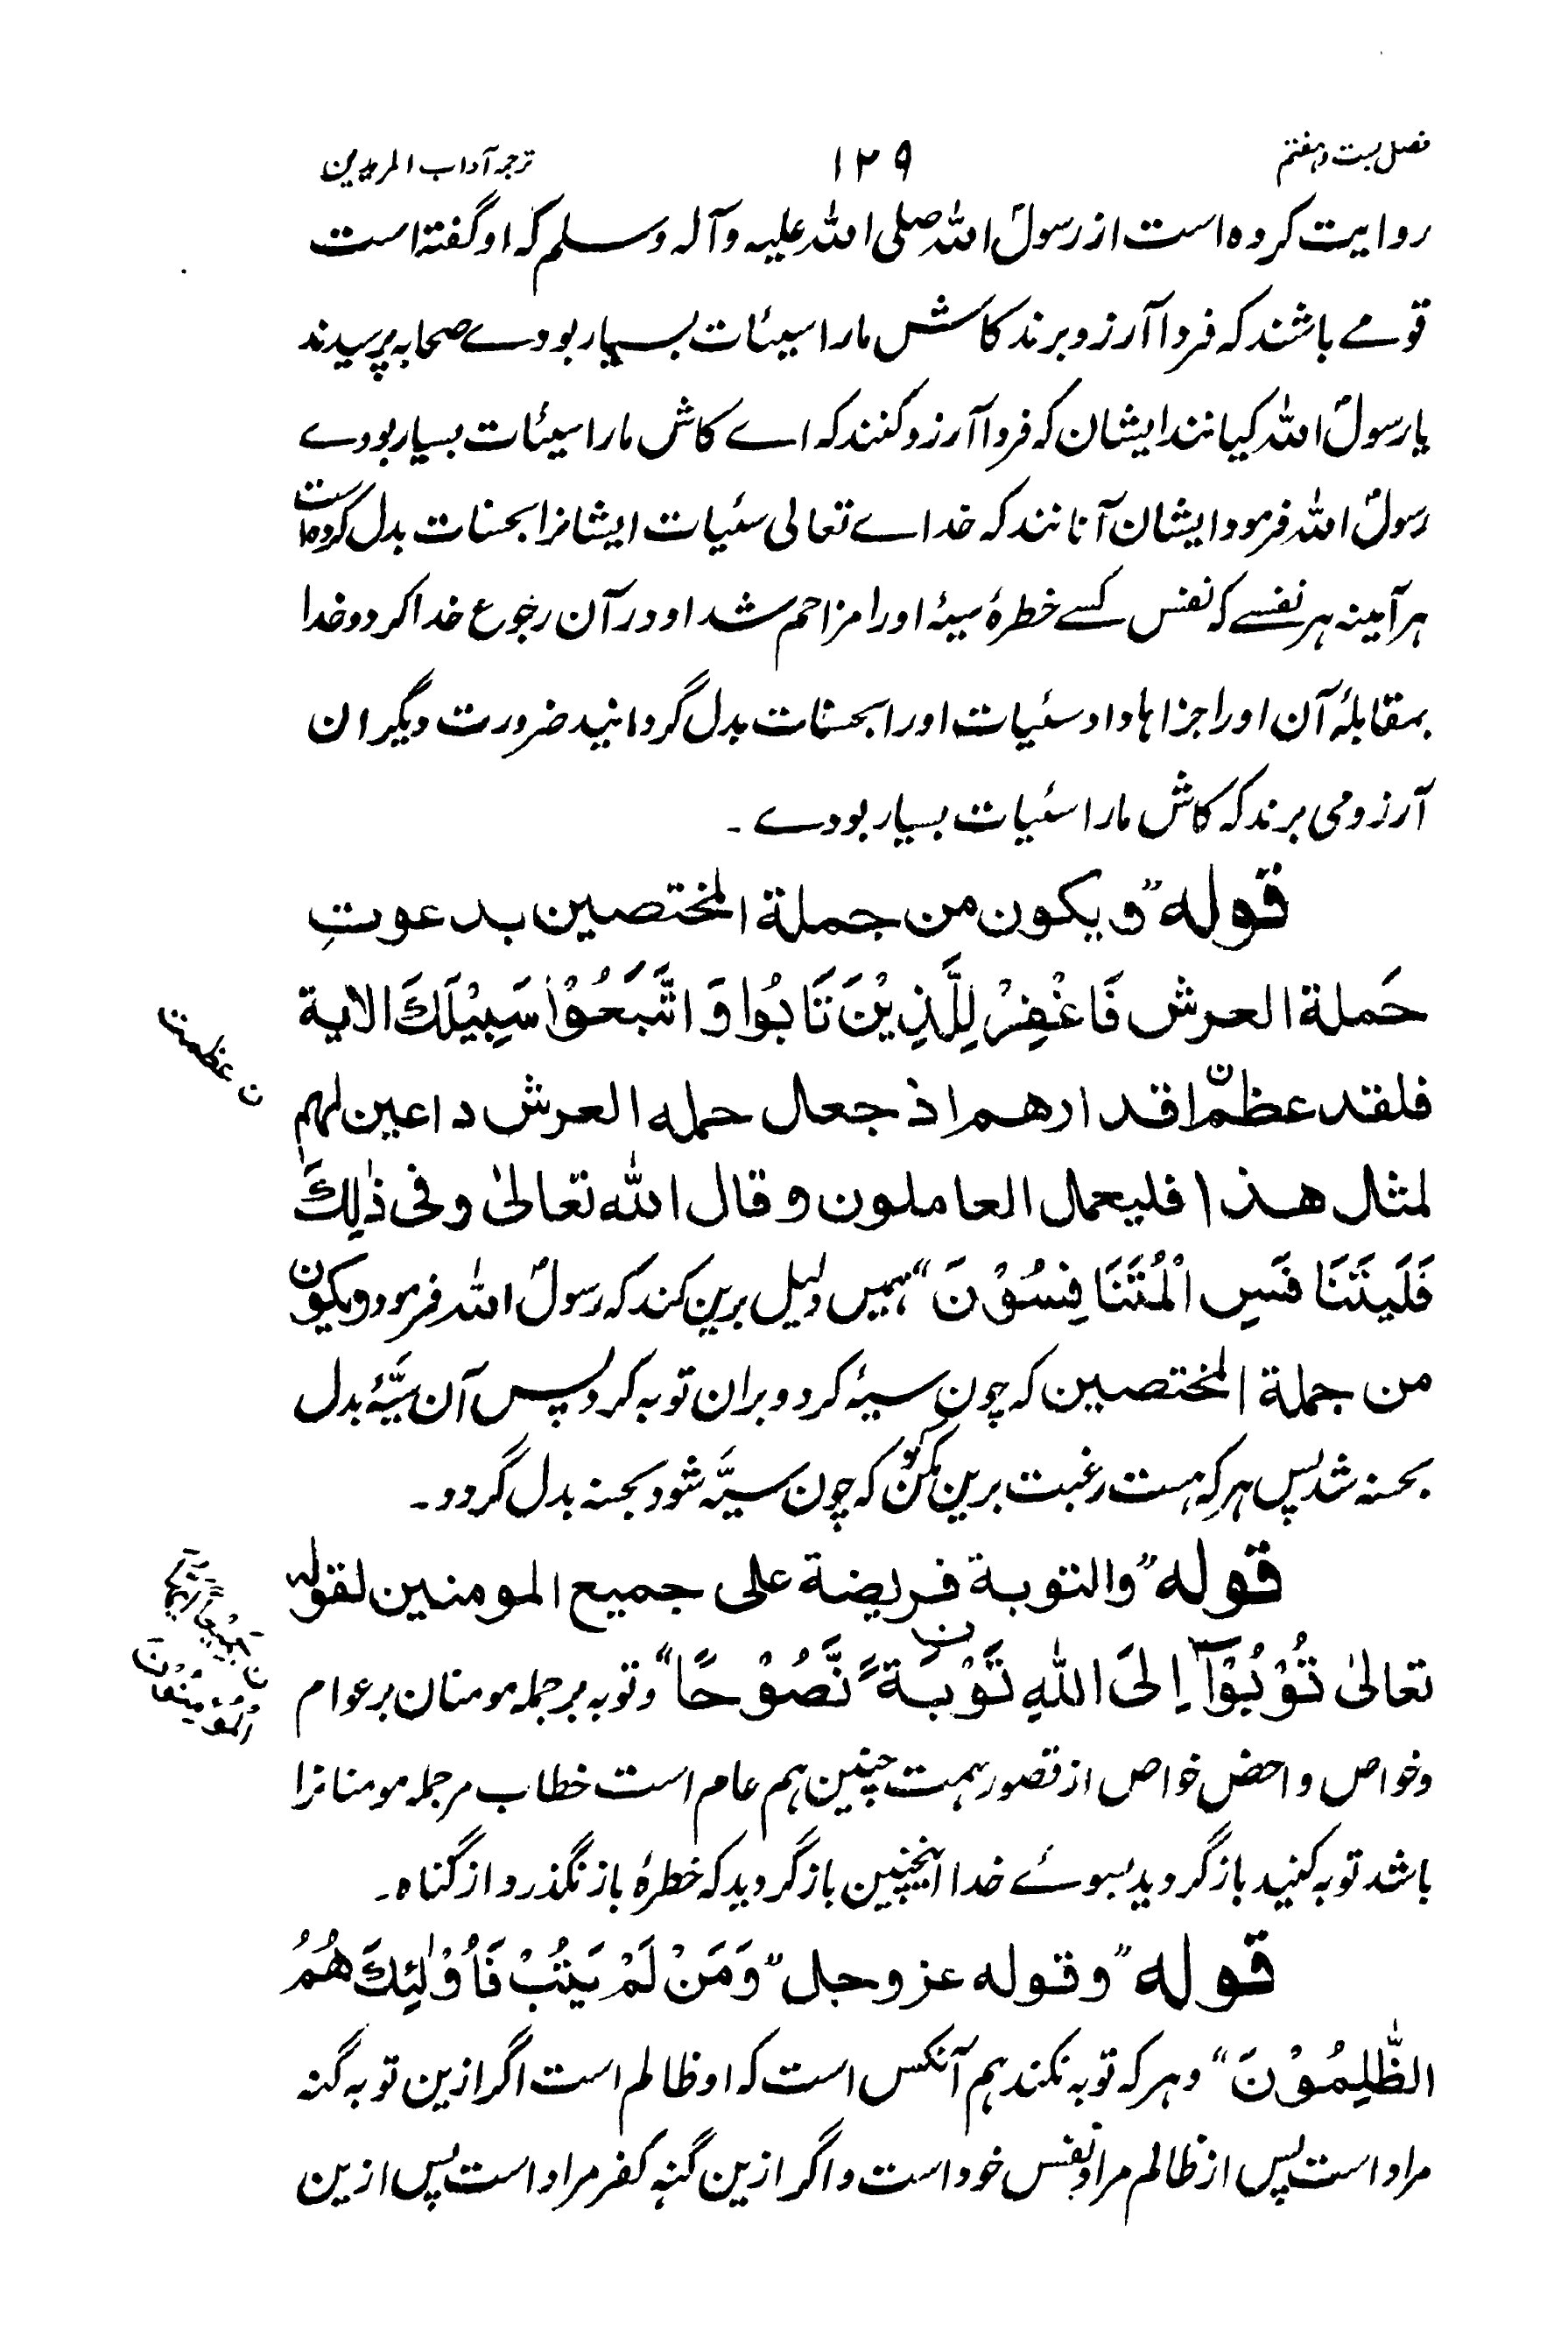 فصل بست و ہفتم ۱۲۹ ترجمہ آداب المریدین
روایت کردہ است از رسولؐ اللہ صلی اللہ علیہ وآلہ وسلم کہ او گفتہ است
قومے باشند کہ فردا آرزو برند کاش مارا سیئات بسیار بودے صحابہ پرسیدند
یا رسولؐ اللہ کیانند ایشان کہ فردا آرزو کنند کہ اے کاش مارا سیئات بسیار بودے
رسولؐ اللہ فرمود ایشان آنانند کہ خداے تعالی سئیات ایشانرا بحسنات بدل کردہ است
ہر آمینہ ہر نفسے کہ نفس کسے خطرۂ سیۂ اورا مزاحم شد او در آن رجوع خدا کرد و خدا
بمقابلۂ آن اورا جزاہا داد سئیات اورا بحسنات بدل گردانید ضرورت دیگران
آرزو می برند کہ کاش مارا سئیات بسیار بودے ۔
قوله ”و یکون من جملة المختصین بدعوتِ
حَملة العرش فَاغْفِرْ لِلَّذِیْنَ تَابُوا وَ اتَّبَعُوْا سَبِیْلَكَ الایة
فلقد عظمن اقدارهم اذ جعل حمله العرش داعین لهم
ن عظمت
لمثل هذا فلیعمل العاملون و قال الله تعالیٰ و فی ذٰلِكَ
فَلَیَتَنَا فَسِ الْمُتَنَا فِسُوْنَ “ ہمیں دلیل برین کند کہ رسولؐ اللہ فرمود ویکون
من جملة المختصین کہ چون سیۂ کرد و بران توبہ کرد پس آن سیَّۂ بدل
بحسنہ شد پس ہر کہ ہست رغبت برین کن کہ چون سیَّہ شود بحسنہ بدل گردد ۔
قوله ”والتوبة فریضة علی جمیع المومنین لقوله
تعالیٰ تُوْبُوْآ اِلیَ اللهِ تَوْبَةً نَّصُوْحًا “ و توبہ بر جملہ مومنان بر عوام
ن جَمِیْعًا اَیُّهَا الْمُؤْمِنُوْنَ
وخواص و اخص خواص از قصور ہمت چنین ہم عام است خطاب مر جملہ مومنانرا
باشد توبہ کنید باز گردید بسوئے خدا اینچنین باز گردید کہ خطرۂ باز نگذرد از گناہ ۔
قوله ”وقوله عز وجل “ وَمَنْ لَمْ یَتُبْ فَاُوْلٰئِكَ هُمُ
الظّٰلِمُوْنَ “ و ہر کہ توبہ نکند ہم آنکس است کہ او ظالم است اگر ازین توبہ گنہ
مراد است پس از ظالم مراد نفس خود است و اگر ازین گنہ کفر مراد است پس ازین